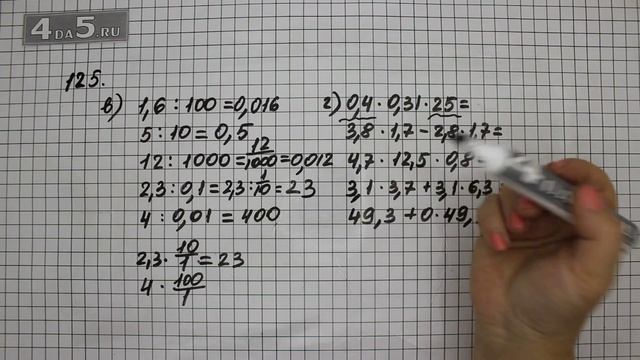 4DA5.RU
125.
в) 1,6 : 100 = 0,016
5 : 10 = 0,5
12 : 1000 = 12/1000 = 0,012
2,3 : 0,1 = 2,3 : 1/10 = 23
4 : 0,01 = 400
2,3 · 10/1 = 23
4 · 100/1
г) 0,4 · 0,31 · 25 =
3,8 · 1,7 - 2,8 · 1,7 =
4,7 · 12,5 · 0,8
3,1 · 3,7 + 3,1 · 6,3
49,3 + 0 · 49,